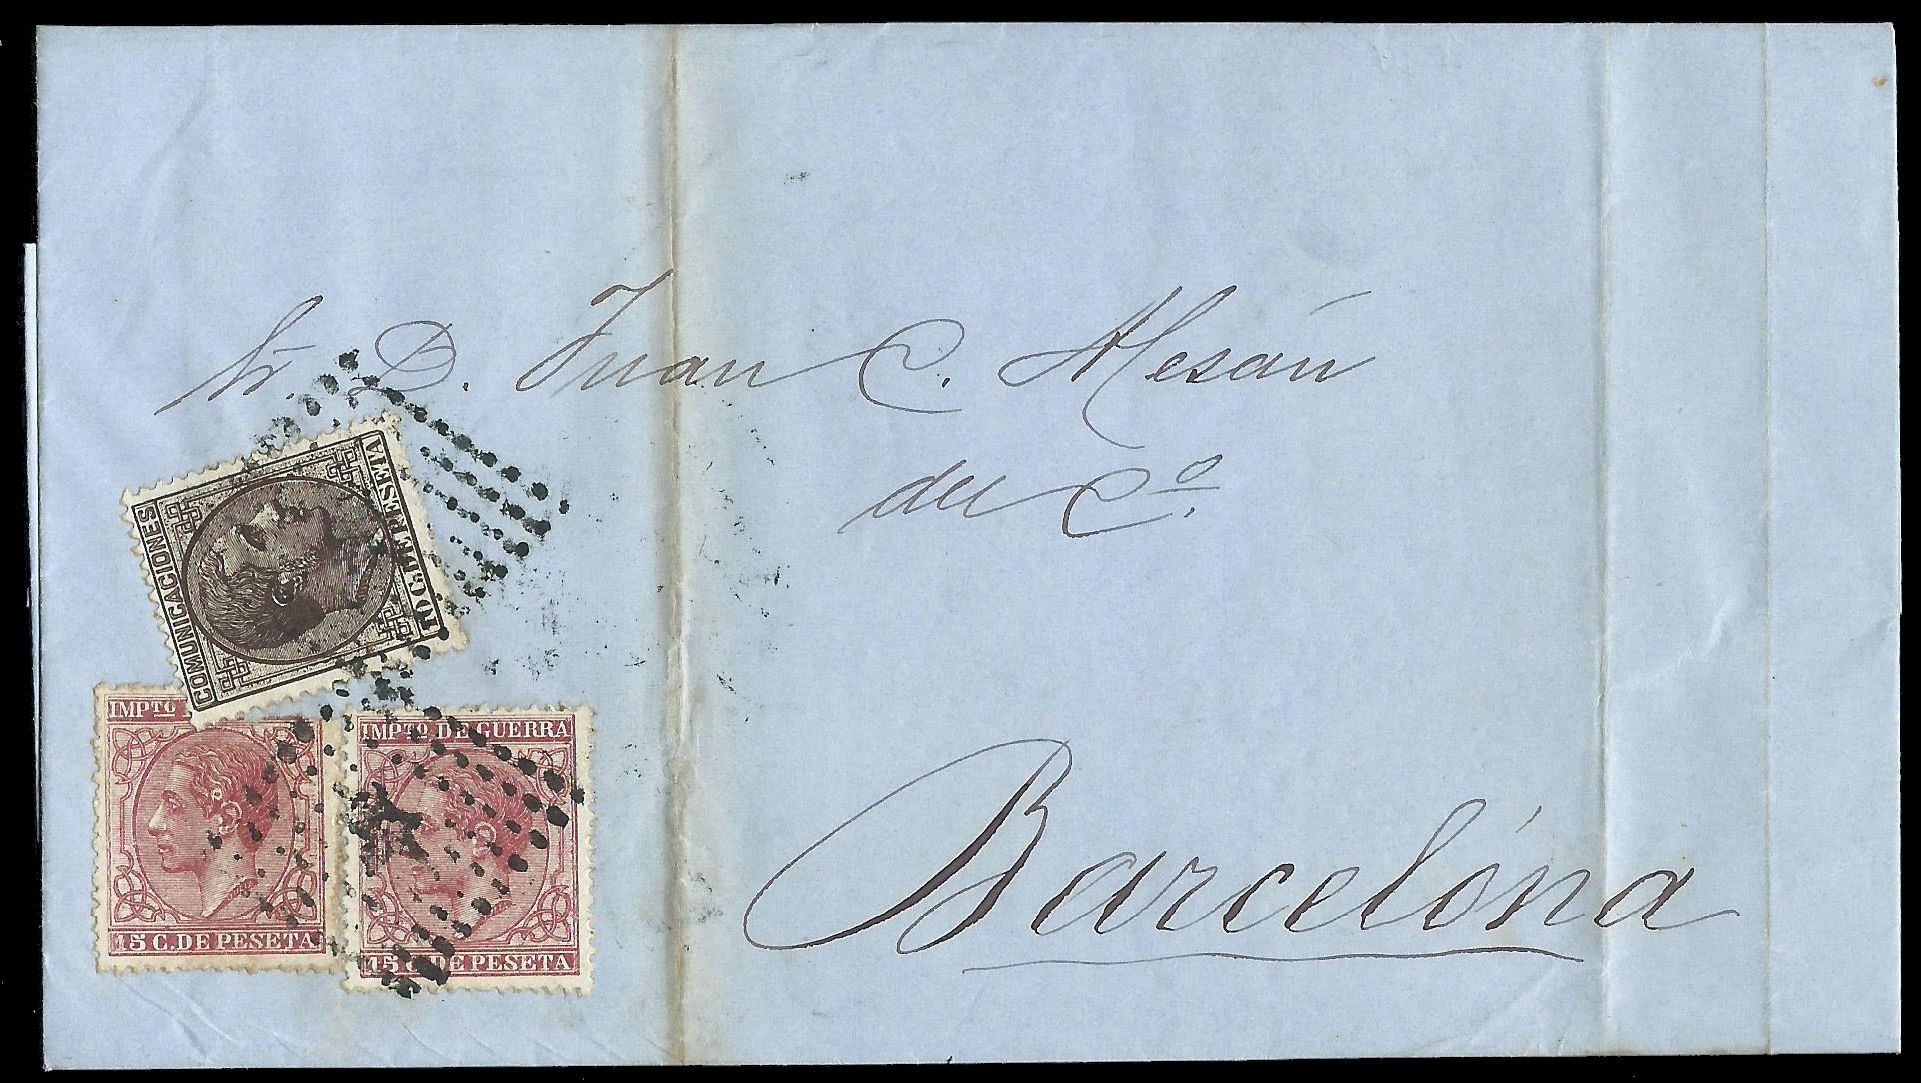 Sr. D. Juan C. Mesán
del C.º
Barcelóna
COMUNICACIONES
10 C. DE PESETA
IMPTO
15 C. DE PESETA
IMPTO DE GUERRA
15 C. DE PESETA